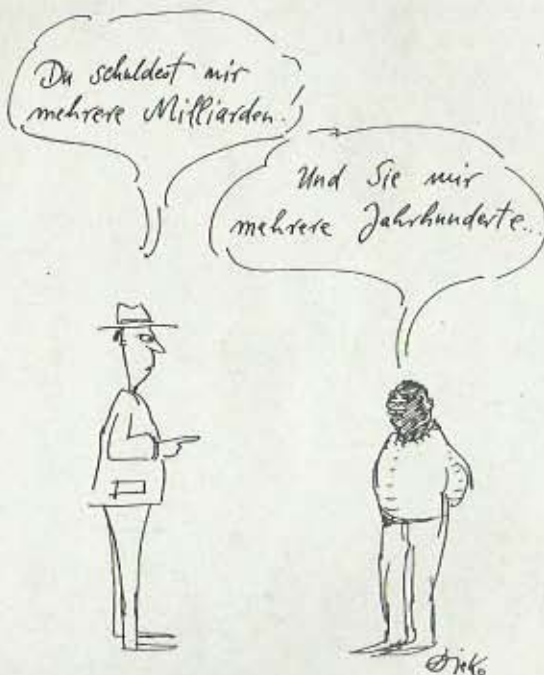 Du schuldest mir
mehrere Milliarden!
Und Sie mir
mehrere Jahrhunderte...